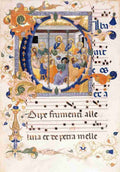 iba
dipe frumenti alle
luia et de petra melle